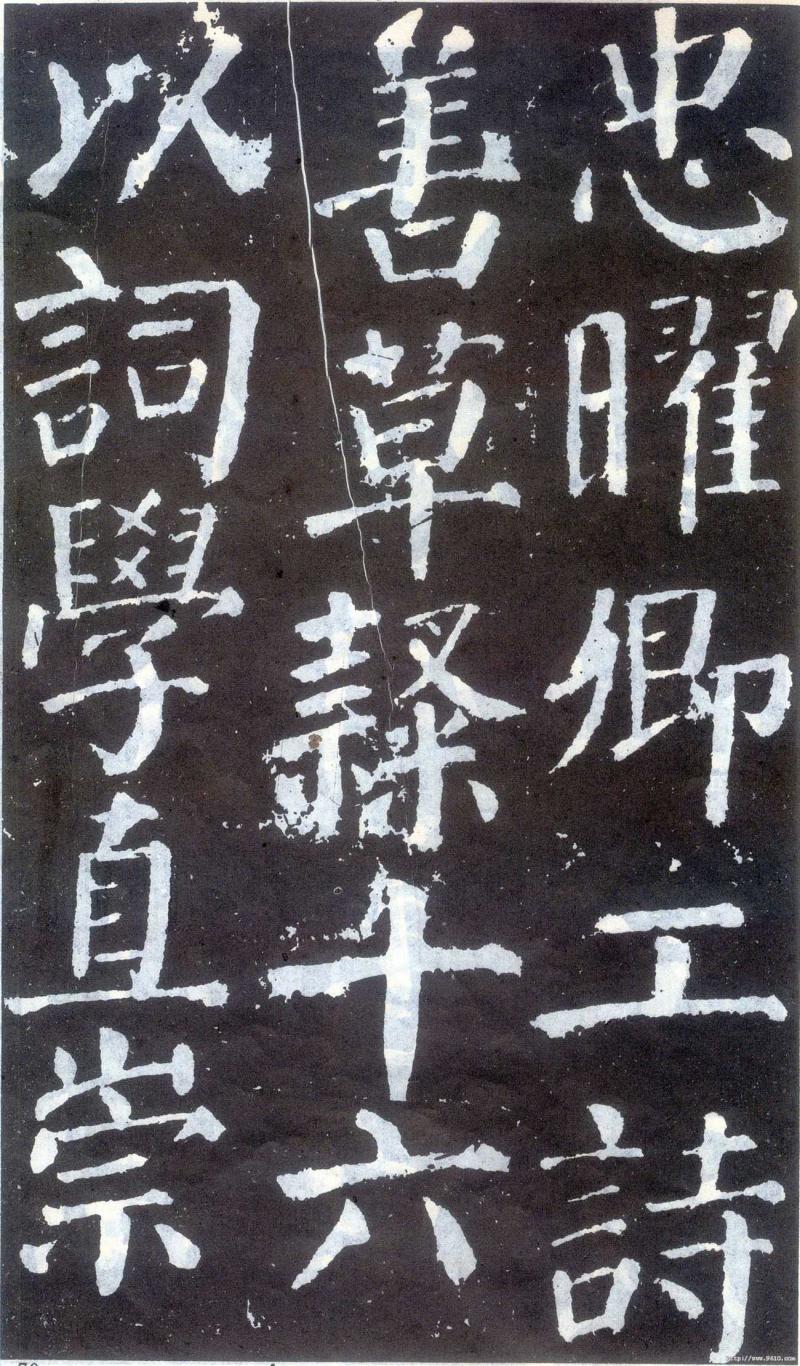 忠曜卿工詩
善草隸十六
以詞學直崇
http://www.9610.com